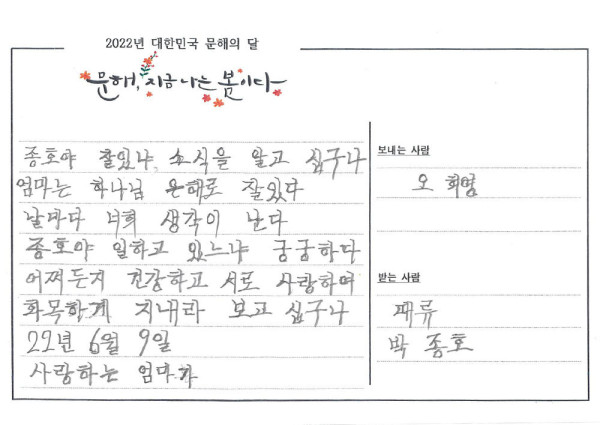 2022년 대한민국 문해의 달
문해, 지금 나는 봄이다
종호야 잘있냐, 소식을 알고 십구나
엄마는 하나님 은해로 잘있다
날마다 너희 생각이 난다
종호야 일하고 있느냐 궁궁하다
어쩌든지 건강하고 서로 사랑하며
화목하게 지내라 보고 십구나
22년 6월 9일
사랑하는 엄마가
보내는 사람
오 희영
받는 사람
패류
박 종호